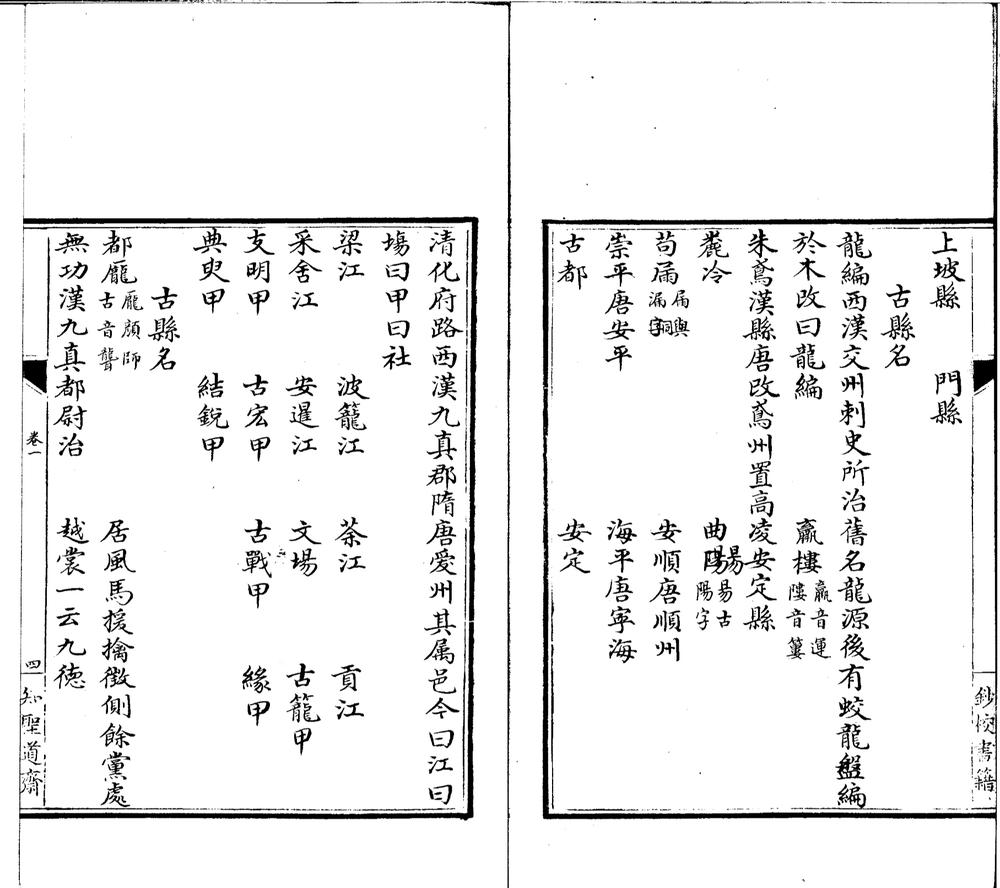 上坡縣　門縣
古縣名
龍編西漢交州刺史所治舊名龍源後有蛟龍盤編
於木改曰龍編　羸𨻻羸音運𨻻音簍
朱鳶漢縣唐改鳶州置高凌安定縣
麊冷　曲昜昜古陽字
苟屚屚與漏同字　安順唐順州
崇平唐安平　海平唐寧海
古都　安定
鈔校書籍
清化府路西漢九真郡隋唐愛州其属邑今曰江曰
場曰甲曰社
梁江　波籠江　茶江　貢江
采舍江　安暹江　文場　古籠甲
支明甲　古宏甲　古戰甲　緣甲
典臾甲　結銳甲
古縣名
都龐龐顏師古音聾　居風馬援擒徵側餘黨處
無功漢九真都尉治　越裳一云九德
卷一
四
知聖道齋